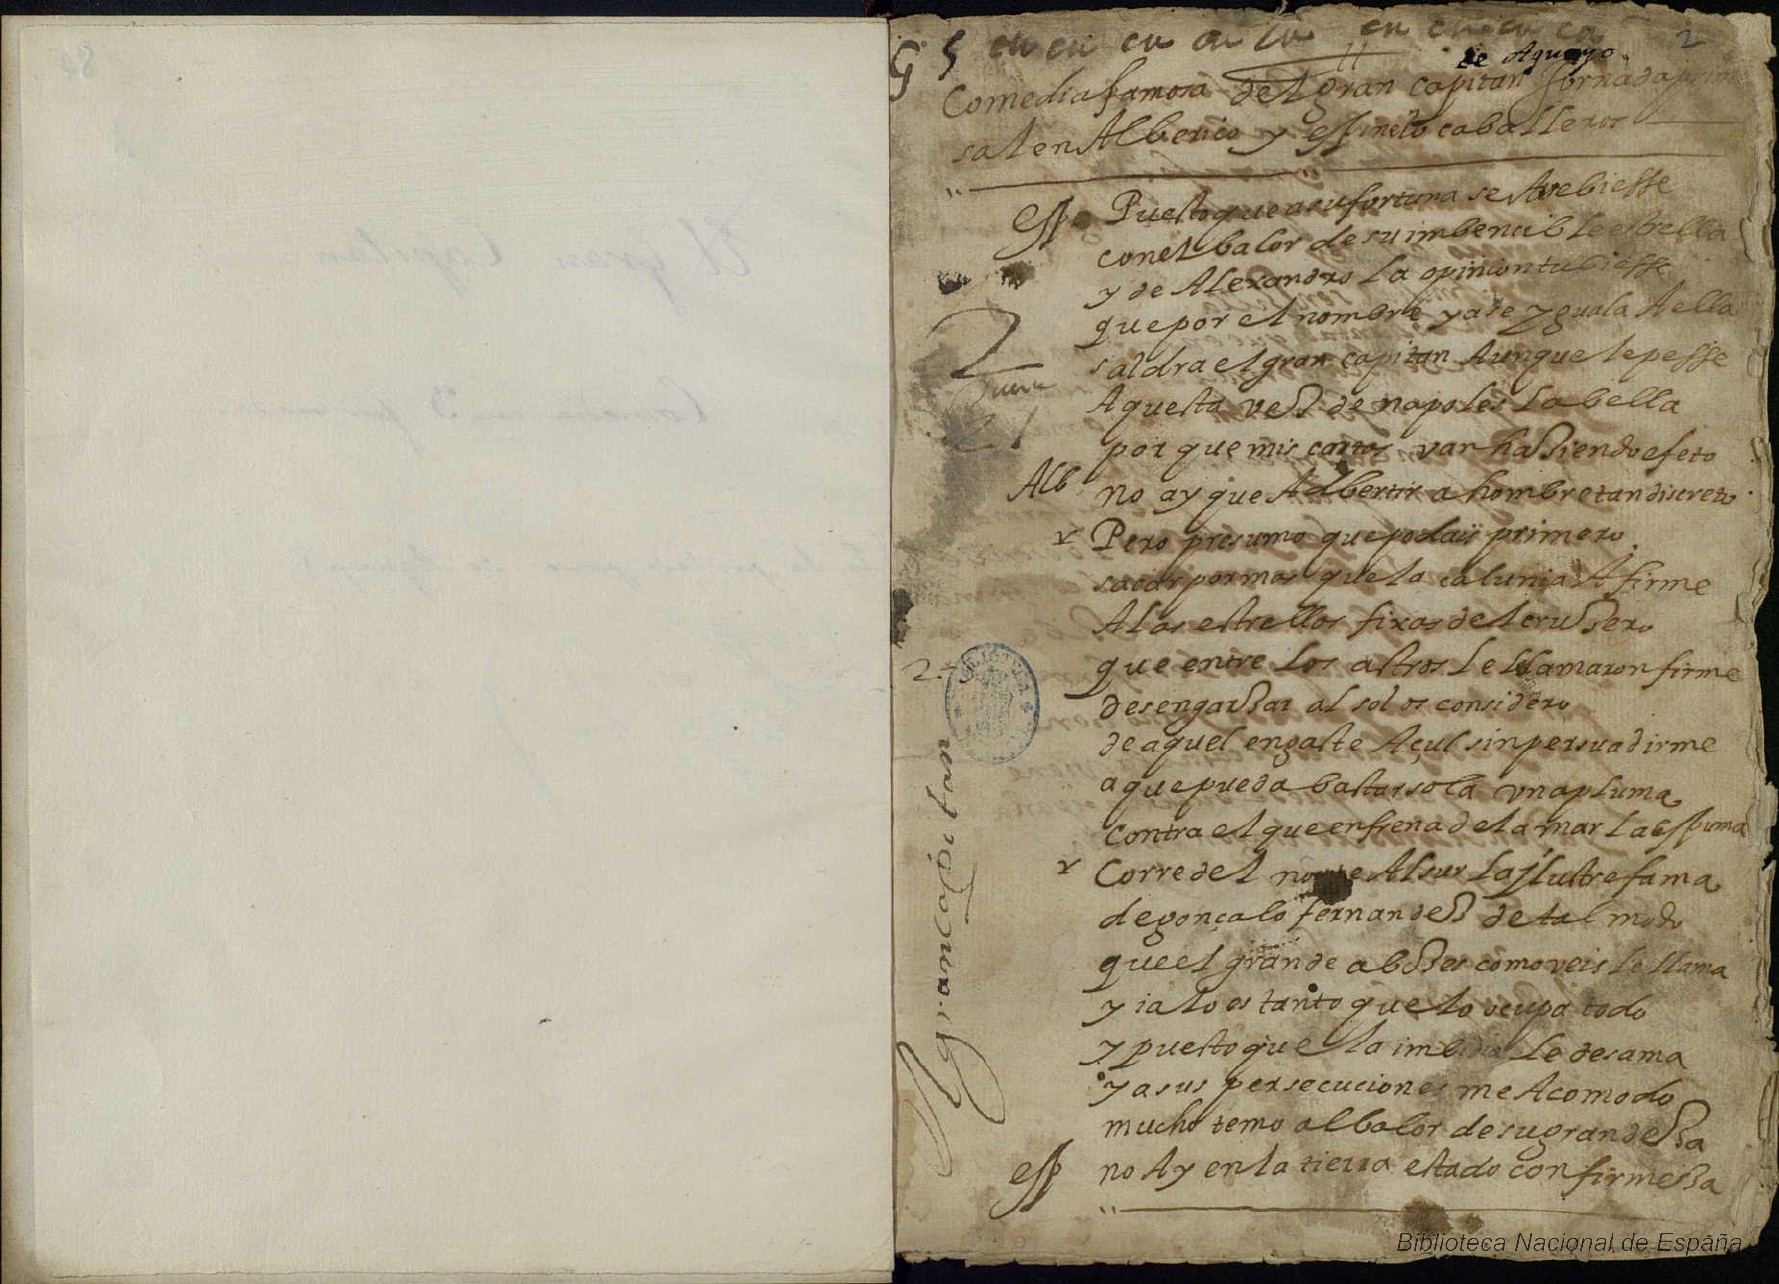 2
de Aguayo
Comedia famosa del gran capitan Jornada prim
salen Alberico y espinelo caballeros
esp Puesto que a su fortuna se Atrebiesse
con el balor de su imbencible estrella
y de Alexandro la opinion tubiesse
que por el nombre ya se yguala A ella
saldra el gran capitan Aunque le pesse
Aquesta vez de napoles la bella
por que mis cartas van haziendo efeto
Alb no ay que Adbertir a hombre tan discreto
Pero presumo que podais primero
sacar por mas que la calunia Afirme
A las estrellas fixas del cruzero
que entre los astros le llamaron firme
desengarzar al sol os considero
de aquel engaste Açul sin persuadirme
a que pueda bastar sola vna pluma
contra el que enfrena de la mar la espuma
Corre del norte Al sur la jlustre fama
de gonçalo fernandez de tal modo
que el grande a bozes como veis le llama
y ia lo es tanto que lo ocupa todo
y puesto que la imbidia le desama
y a sus persecuciones me Acomodo
mucho temo al balor de su grandeza
esp no Ay en la tierra estado con firmeza
El gran capitan
Biblioteca Nacional de España